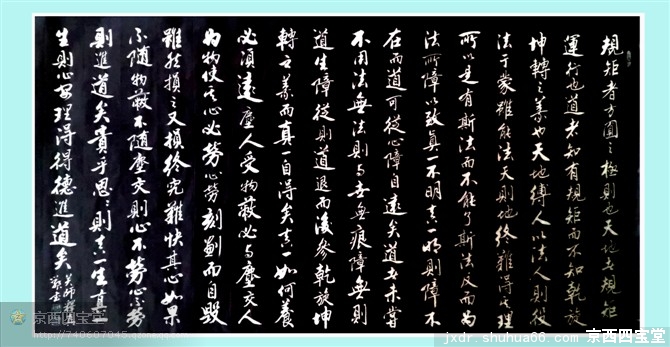 規矩者方圓之極則也天地者規矩
運行也道者知有規矩而不知乾旋
坤轉之義也天地縛人以法人則役
法于蒙雖能法天則地終難得理
所以是有斯法而不能了斯法反而為
法所障以致真一不明真一明則障不
在而道可從心障自遠矣道者未嘗
不用法無法則与世無痕障無則
道生障從則道退而後參乾旋坤
轉之義而真一自得矣真一如何養
必須遠塵人受物蔽必与塵交人
為物使其心必勞心勞刻劃而自毀
雖然損之又損終究難快其心如果
不随物蔽不随塵交則心不勞心不勞
則進道矣貴乎思思則真一生真
生則心安理得得德進道矣
京西四宝堂
jxdr.shuhua66.com
京西四宝堂